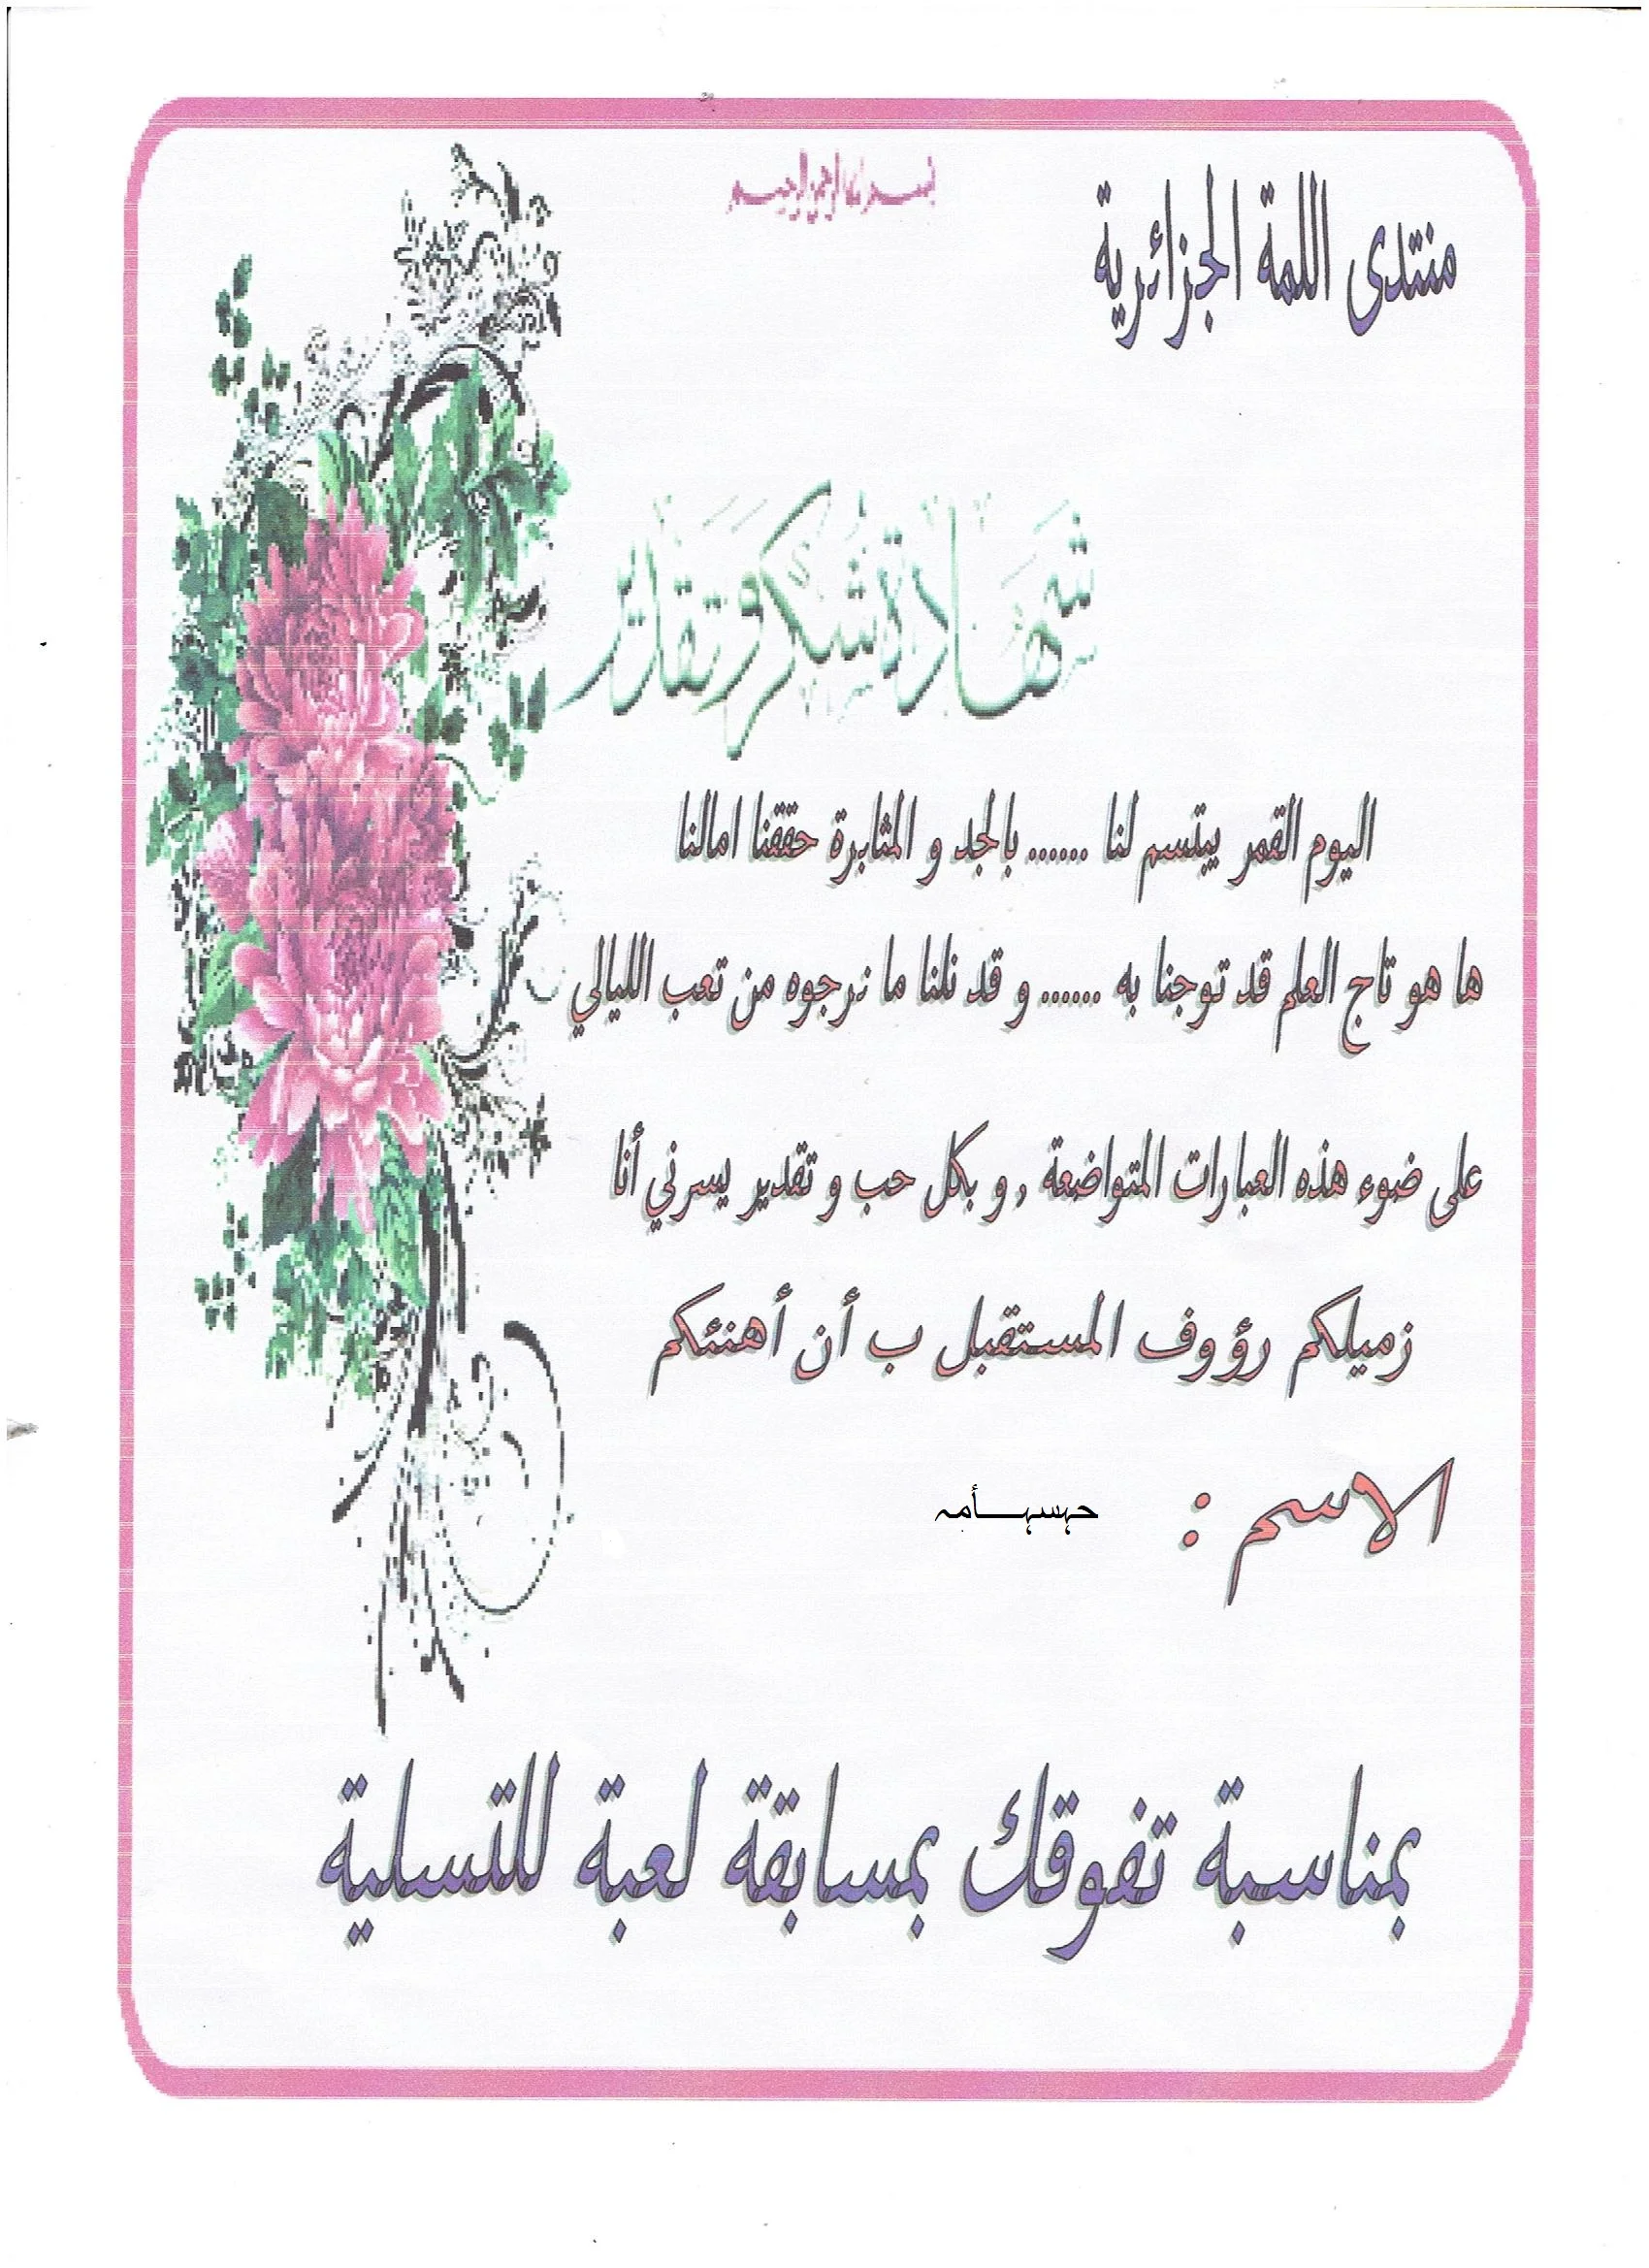 بسم الله الرحمن الرحيم
منتدى اللمة الجزائرية
شَهَادَة شُكْر وَتَقْدِير
اليوم القمر يبتسم لنا ...... بالجد و المثابرة حققنا امالنا
ها هو تاج العلم قد توجنا به ...... و قد نلنا ما نرجوه من تعب الليالي
على ضوء هذه العبارات المتواضعة , و بكل حب و تقدير يسرني أنا
زميلكم رؤوف المستقبل ب أن أهنئكم
الاسم : حہسہــأمہ
بمناسبة تفوقك بمسابقة لعبة للتسلية